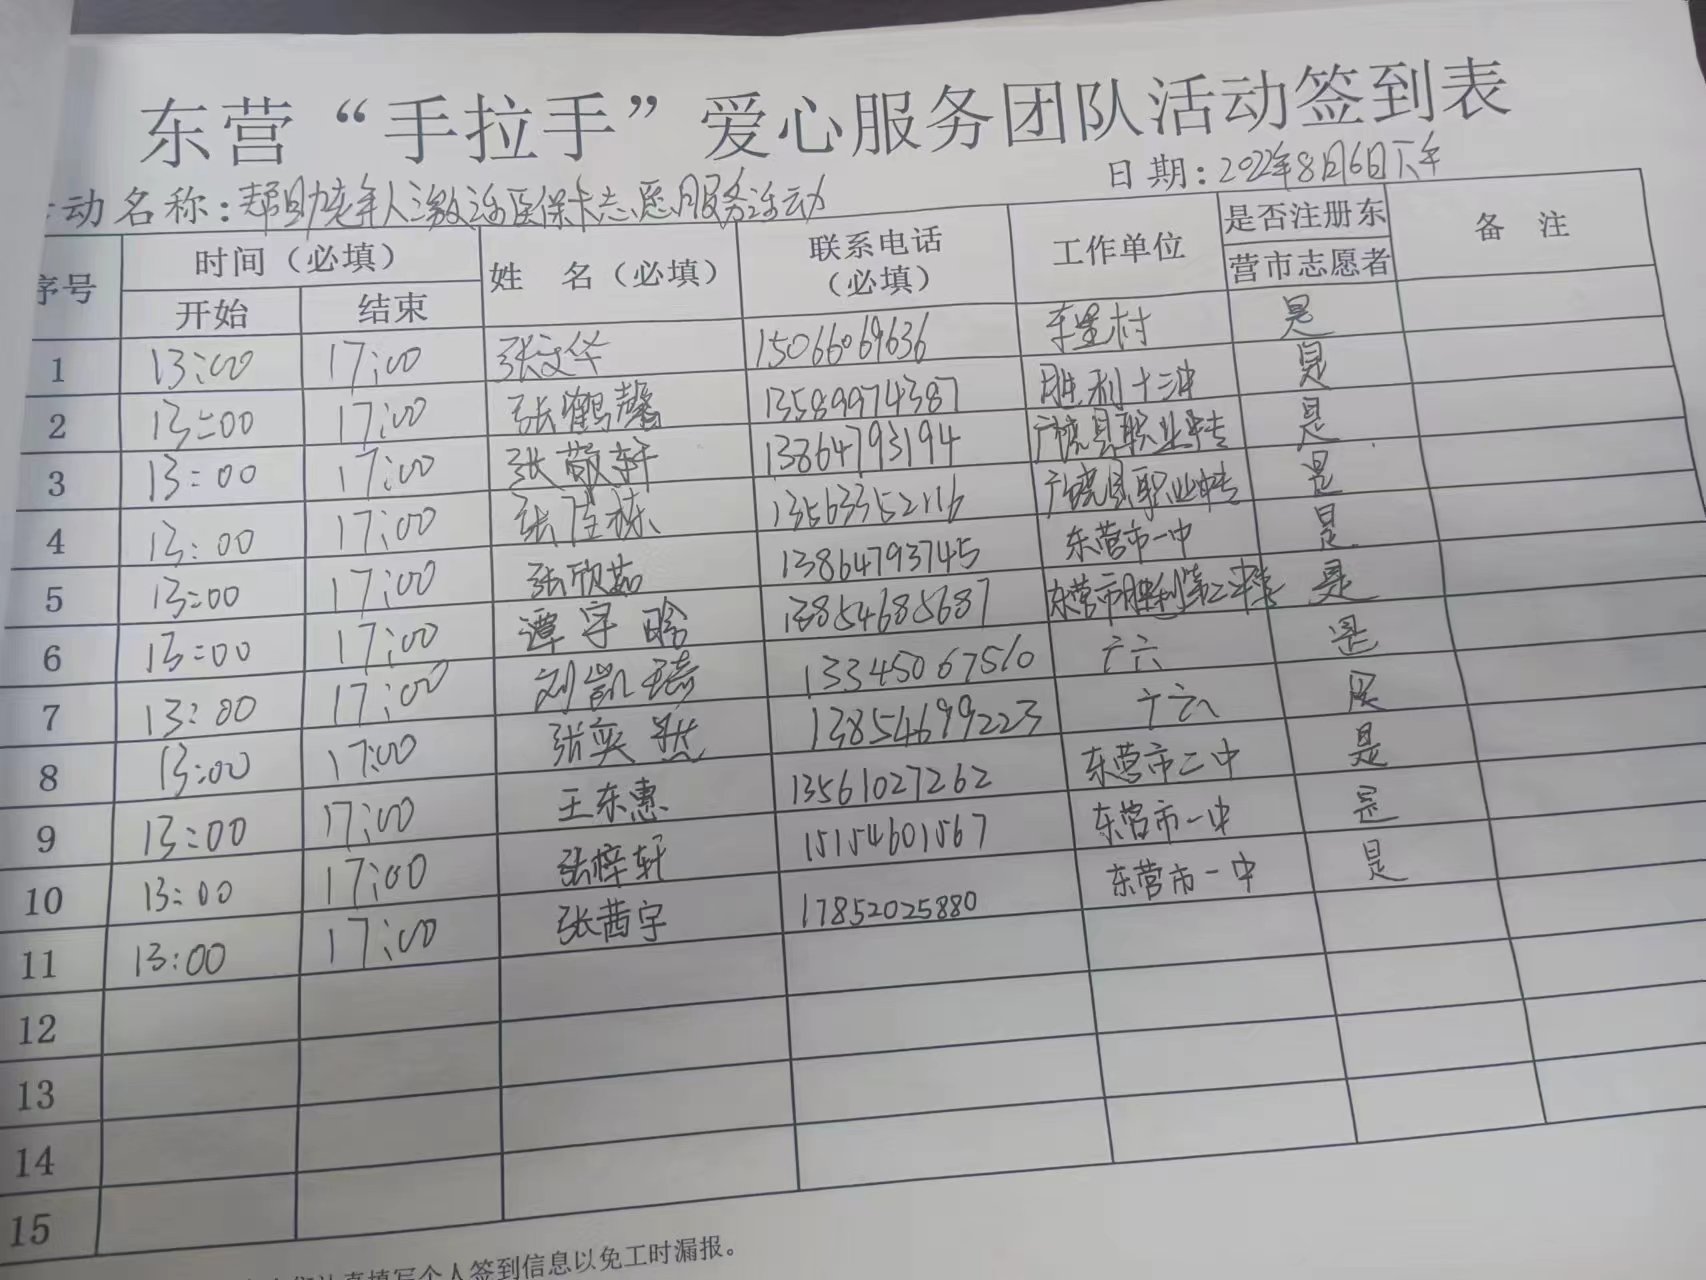 东营“手拉手”爱心服务团队活动签到表
日期：2022年8月6日下午
动名称：帮助老年人激活医保卡志愿服务活动
序号 时间（必填） 姓 名（必填） 联系电话（必填） 工作单位 是否注册东营市志愿者 备 注
开始 结束
1 13:00 17:00 张文华 15066069636 村 是
2 13:00 17:00 张鹤馨 13589974387 胜利十三中 是
3 13:00 17:00 张敬轩 13864793194 广饶县职业中专 是
4 13:00 17:00 张 栋 13563352116 广饶县职业中专 是
5 13:00 17:00 张欣茹 13864793745 东营市一中 是
6 13:00 17:00 谭宇晗 13854685687 东营市胜利第二中学 是
7 13:00 17:00 刘凯 13345067510 十六 是
8 13:00 17:00 张奕 13854699223 十六 是
9 13:00 17:00 王东惠 13561027262 东营市二中 是
10 13:00 17:00 张梓轩 15154601567 东营市一中 是
11 13:00 17:00 张茜宇 17852025880 东营市一中 是
12
13
14
15
真填写个人签到信息以免工时漏报。